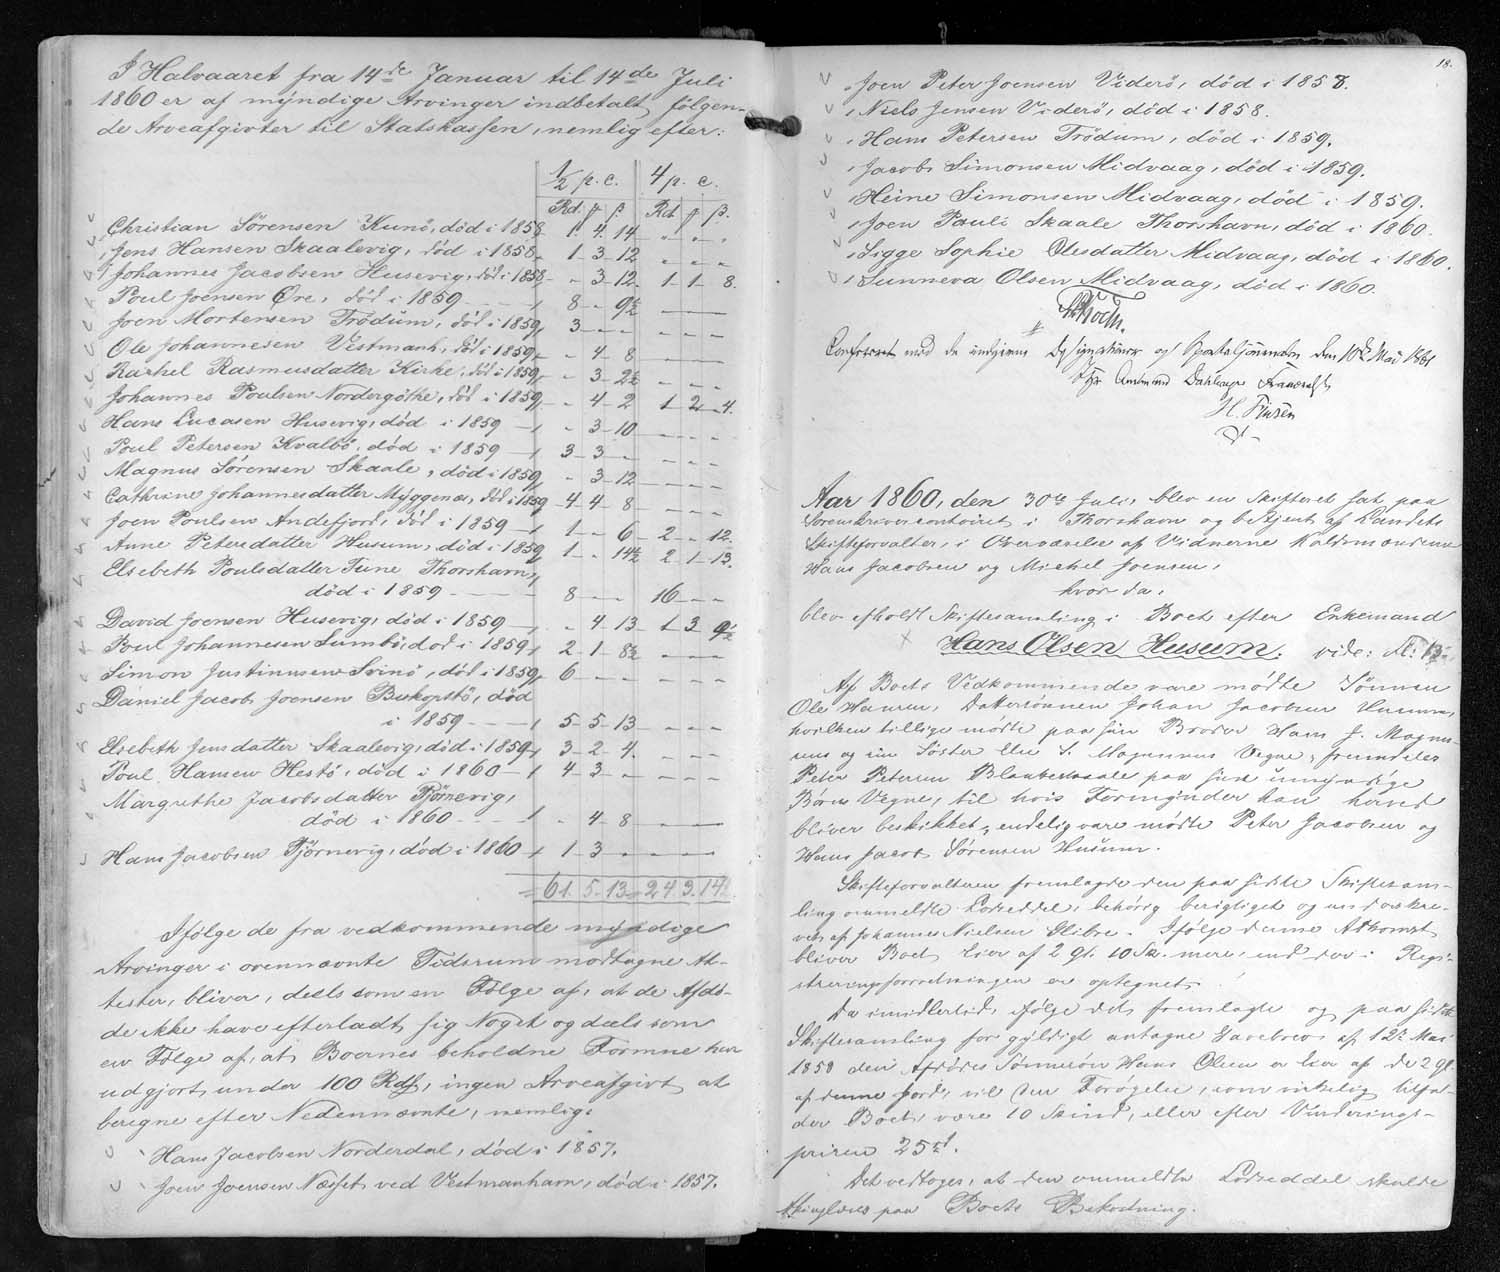 I Halvaaret fra 14de Januar til 14de Juli
1860 er af myndige Arvinger indbetalt, følgen-
de Arveafgivter til Statskassen, nemlig efter:
½ p. c. 4 p. c.
Rd. ƒ β. Rd. ƒ β.
Christian Sörensen Kunö, död i 1858 1. 4. 14 „ „ „
Jens Hansen Skaalevig, död i 1858 - 1 - 3 - 12 „ „ „
Johannes Jacobsen Husevig, död i 1858 „ - 3 - 12. 1 - 1 - 8.
Poul Joensen Öre, död i 1859 - - - 8 - „ 9½
Joen Mortensen Trödum, död i 1859, 3 - - - - -
Ole Johannesen Vestmanh., död i 1859 - „ - 4 - 8
Rachel Rasmusdatter Kirke, död i 1859, - „ - 3 - 2½ - - -
Johannes Poulsen Nordergöthe, död i 1859, - „ - 4 - 2 1 2 - 4.
Hans Lucasen Husevig, död i 1859 - „ - 3 - 10 - - -
Poul Petersen Kvalbö, död i 1859 - 3 - 3 - - - -
Magnus Sörensen Skaale, död i 1859, „ - 3 - 12 - - -
Cathrine Johannesdatter Myggenæs, död i 1859 - 4 - 4 - 8 - - -
Joen Poulsen Andefjord, död i 1859 - 1 - „ - 6 - 2 - „ 12.
Anne Petersdatter Husum, död i 1859, 1 - „ 14½ 2 - 1 - 13.
Elsebeth Poulsdatter Tune Thorshavn,
död i 1859 - - - 8 - - - 16 - - -
David Joensen Husevig, död i 1859 - „ - 4 - 13 - 1 3 9½
Poul Johannesen Sumbö, död i 1859, 2 - 1 - 8½ - - -
Simon Justinussen Svinö, död i 1859, 6 - - - - -
Daniel Jacob Joensen Buskopstö, död
i 1859 - - - 5 - 5 - 13 - - -
Elsebeth Jensdatter Skaalevig, död i 1859, 3 - 2 - 4. - - -
Poul Hansen Hestö, död i 1860 - 4 - 3 - - - -
Margrethe Jacobsdatter Tjörnevig,
död i 1860 - - - „ - 4 - 8 - - -
Hans Jacobsen Tjörnevig, död i 1860 - 1 - 3 - - - -
= 61. 5 - 13 = 24 3. 14½.
Ifölge de fra vedkommende myndige
Arvinger i ovennævnte Tidsrum modtagne At-
tester, bliver, deels som en Fölge af, at de Afdö-
de ikke have efterladt sig Noget og deels som
en Fölge af, at Boernes beholdne Formue kun
udgjort under 100 Rd, ingen Arveafgivt at
beregne efter Nedennævnte, nemlig:
Hans Jacobsen Norderdal, död i 1857.
Joen Joensen Næsset ved Vestmanhavn, död i 1857.
18.
Joen Peter Joensen Viderö, död i 1858.
Niels Jensen Viderö, död i 1858.
Hans Petersen Trödum, död i 1859.
Jacob Simonsen Midvaag, död i 1859.
Heine Simonsen Midvaag, död i 1859.
Joen Pauli Skaale Thorshavn, död i 1860.
Sigge Sophie Olesdatter Midvaag, död i 1860.
Sunneva Olsen Midvaag, död i 1860.
Confereret med de indgivne Designationer og Sportuljournalen den 10de Mai 1861
Amtmand Dahlerup
H. Finsen
Aar 1860, den 30te Juli, blev en Skifteret sat paa
Sorenskrivercontoiret i Thorshavn og betjent af Landets
Skifteforvalter, i Overværelse af Vidnerne
Hans Jacobsen og Michel Joensen,
hvor da:
blev afholdt Skiftesamling i Boet efter Enkemand
Hans Olsen Husum. vide: fol: 13.
Af Boets Vedkommende vare mödte Sönnen
Ole Hansen, Dattersönnen Johan Jacobsen Husum,
hvilken tillige mödte paa sin Broder Hans J. Magnu-
sens og sin Söster Else S. Magnusens Vegne, fremdeles
Peter Petersen Blankeskaale paa sine umyndige
Börns Vegne, til hvis Formynder han herved
bliver beskikket, endelig vare mödte Peter Jacobsen og
Hans Jacob Sörensen Husum.
Skifteforvalteren fremlagde den paa sidste Skiftesam-
ling ommeldte Lodseddel, behörig berigtiget og underskre-
vet af Johannes Nielsen Glibre. Ifölge denne Adkomst
bliver Boet Eier af 2 Gl. 10 Sk. mere, end der i Regi-
streringsforretningen er optegnet.
Da imidlertid, ifölge det fremlagte og paa sidste
Skiftesamling for gyldigt antagne Gavebrev af 12te Mai
1858 den Afdödes Sönnesön Hans Olsen er Eier af de 2 Gl.
af denne Jord, vil den Forögelse, som virkelig tilfal-
der Boet, være 10 Skind, eller efter Vurderings-
prisen 25 rd.
Det vedtoges, at den ommeldte Lodseddel skulde
thinglæses paa Boets Bekostning.